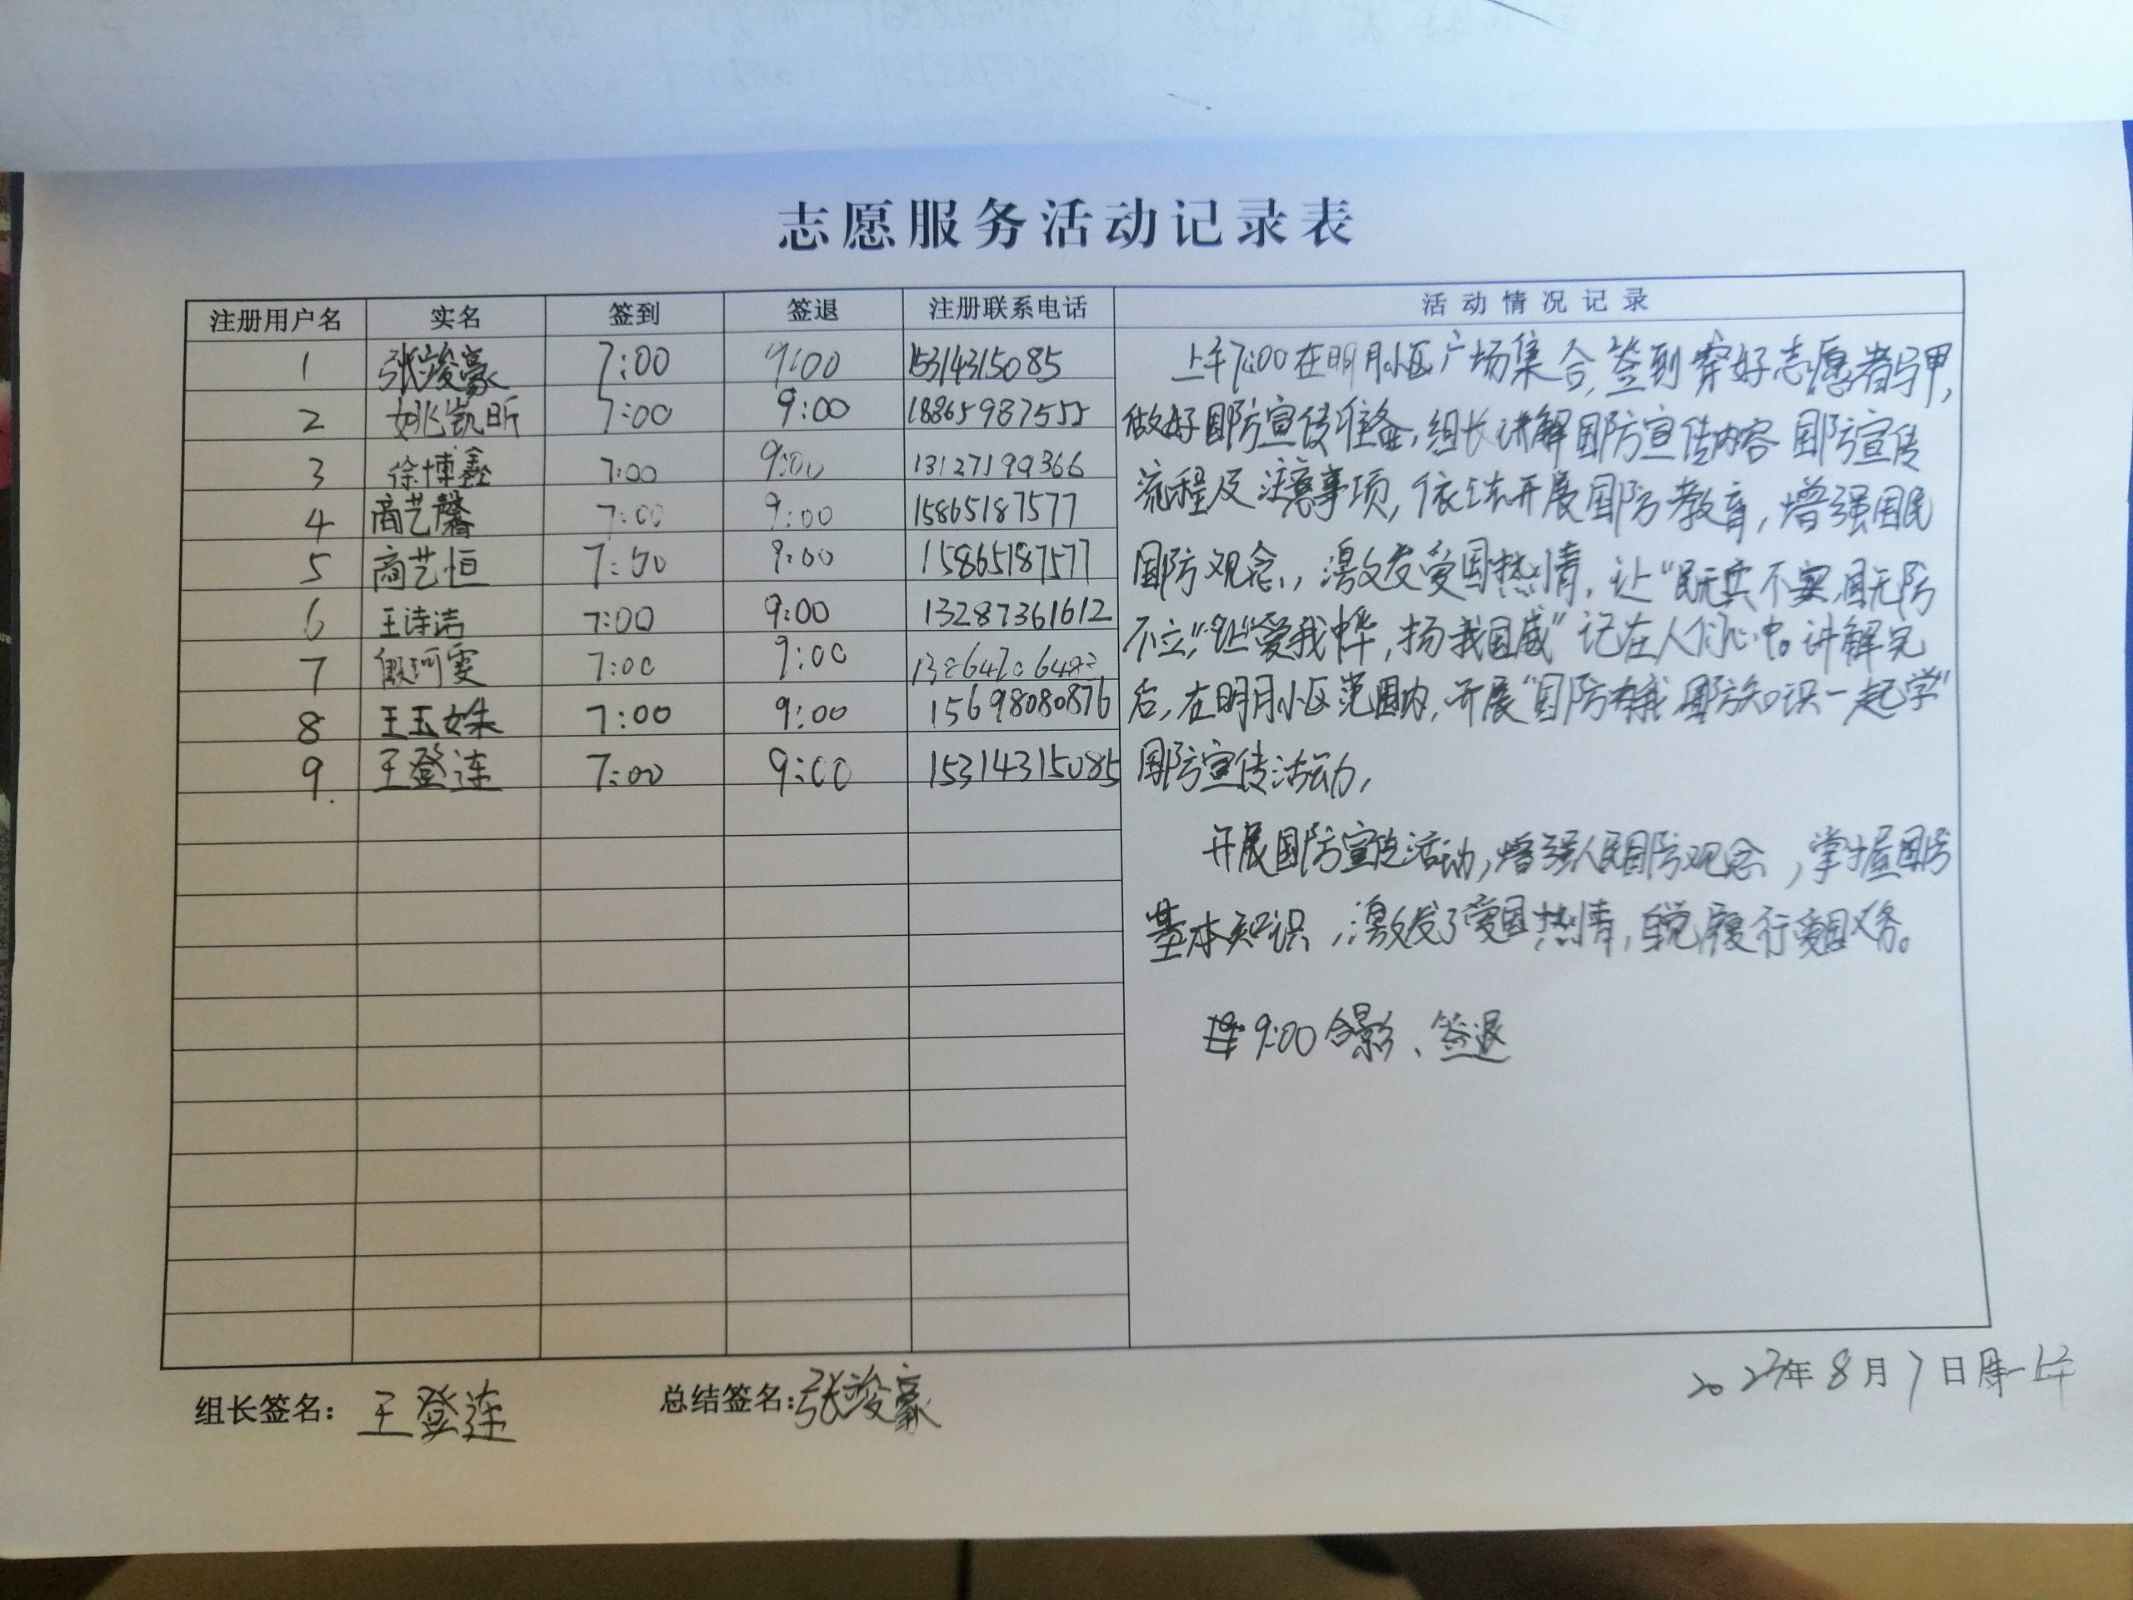 志愿服务活动记录表
注册用户名 实名 签到 签退 注册联系电话 活动情况记录
1 张浚豪 7:00 9:00 15314315085
2 姚凯昕 7:00 9:00 18865987555
3 徐博鑫 7:00 9:00 13127199366
4 商艺馨 7:00 9:00 15865187577
5 商艺恒 7:00 9:00 15865187577
6 王诗涵 7:00 9:00 13287361612
7 7:00 9:00
8 王玉姝 7:00 9:00 15698080876
9. 王登连 7:00 9:00 15314315085
上午7:00在明月小区广场集合,签到穿好志愿者马甲,
做好国防宣传准备,组长讲解国防宣传内容 国防宣传
流程及注意事项,依法开展国防教育,增强国民
国防观念,激发爱国热情,让“民无兵不安,国无防
不立”,“爱我中华,扬我国威”记在人们心中。讲解完
后,在明月小区范围内,开展“国防有我 国防知识一起学”
国防宣传活动,
开展国防宣传活动,增强人民国防观念,掌握国防
基本知识,激发了爱国热情,自觉履行爱国义务。
9:00合影、签退
组长签名: 王登连 总结签名: 张浚豪
2023年8月7日周一上午